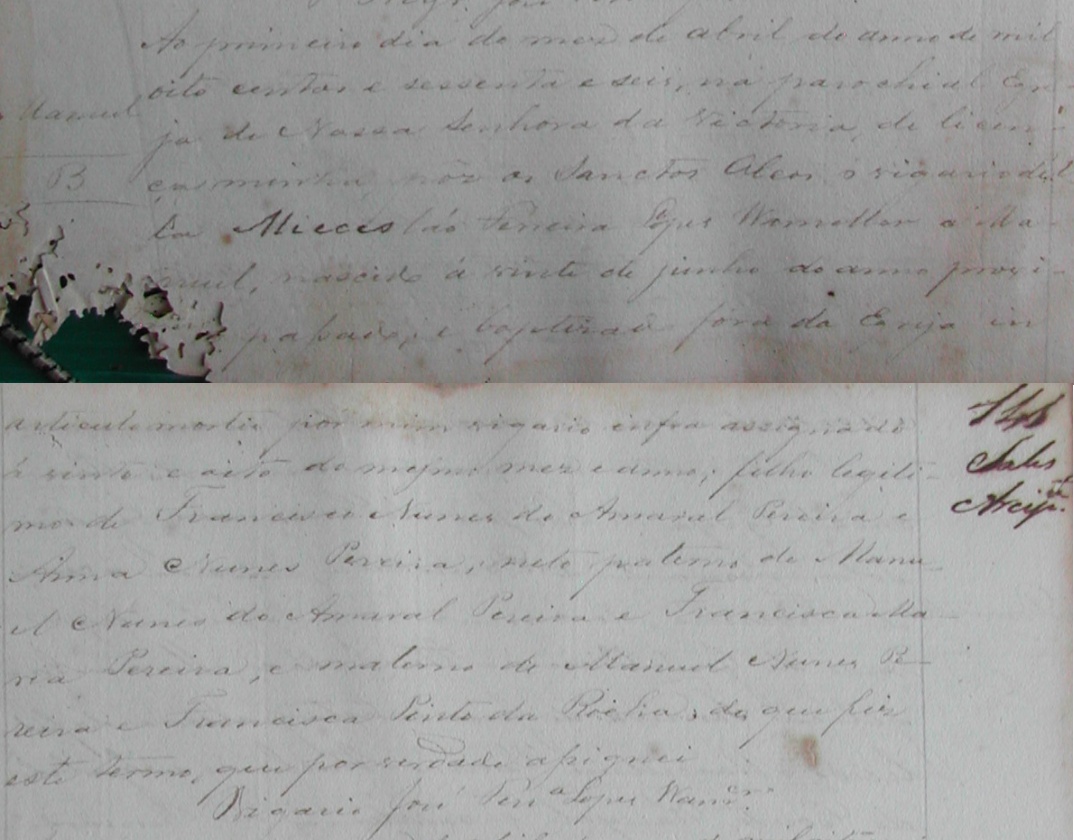 Ao primeiro dia do mez de abril do anno de mil
oito centos e sessenta e seis, na parochial Egre-
Manuel
ja de Nossa Senhora da Victoria, de licen-
B
ça minha, pôz os Sanctos Oleos o vigario del-
la Miecesláo Ferreira Lopes Wanoller a Ma-
nuel, nascido á vinte de junho do anno proxi-
passado, e baptizado fóra da Egreja in
articulo mortis por mim vigario infra assignado
á vinte e oito do mesmo mez e anno; filho legiti-
mo de Francisco Nunes do Amaral Pereira e
Anna Nunes Pereira, neto paterno de Manu-
el Nunes do Amaral Pereira e Francisca Ma-
ria Pereira, e materno de Manuel Nunes Pe-
reira e Francisca Pinto da Rocha; do que fiz
este termo, que por verdade assignei
Vigario José Ferrª Lopes
Sales